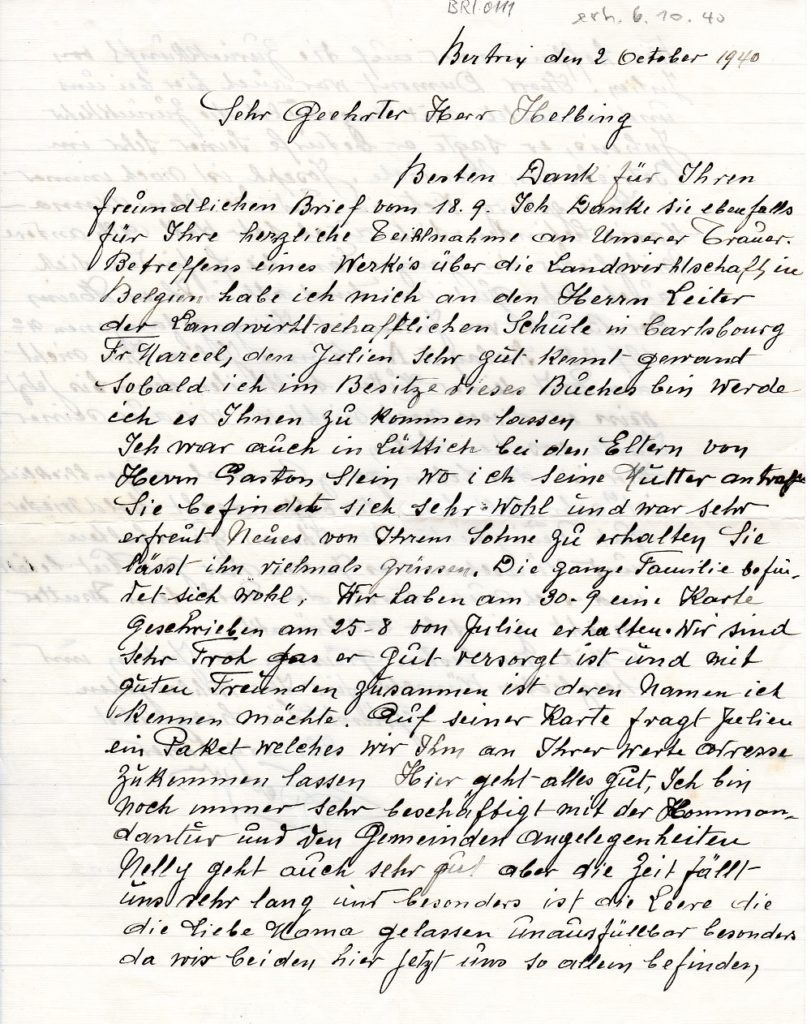 BRI.0111
erh. 6.10.40
Bertrix den 2 October 1940
Sehr Geehrter Herr Helbing
Besten Dank für Ihren
freundlichen Brief vom 18.9. Ich Danke sie ebenfalls
für Ihre herzliche Teihlnahme an Unserer Trauer.
Betreffens eines Werke's über die Landwirtschaft, in
Belgien habe ich mich an den Herrn Leiter
der Landwirtschaftlichen Schule in Carlsbourg
Fr Marcel, den Julien sehr gut kennt gewand
Sobald ich im Besitze dieses Buches bin werde
ich es Ihnen zu kommen lassen
Ich war auch in Lüttich bei den Eltern von
Herrn Gaston Stein wo ich seine Mutter antraffe
Sie befindet sich sehr wohl und war sehr
erfreut Neues von Ihrem Sohne zu erhalten Sie
lässt ihn vielmals grüssen. Die ganze Familie befin-
det sich wohl, Wir haben am 30-9 eine Karte
geschrieben am 25-8 von Julien erhalten. Wir sind
sehr Froh das er gut versorgt ist und mit
guten Freunden zusammen ist deren Namen ich
kennen möchte. Auf seiner Karte fragt Julien
ein Paket welches wir Ihm an Ihrer werte Adresse
zukommen lassen Hier geht alles gut, Ich bin
noch immer sehr beschäftigt mit der Komman-
dantur und den Gemeinden angelegenheiten
Nelly geht auch sehr gut aber die Zeit fällt
uns sehr lang und besonders ist die Leere die
die Liebe Mama gelassen unausfüllbar besonders
da wir beiden hier jetzt uns so allein befinden,